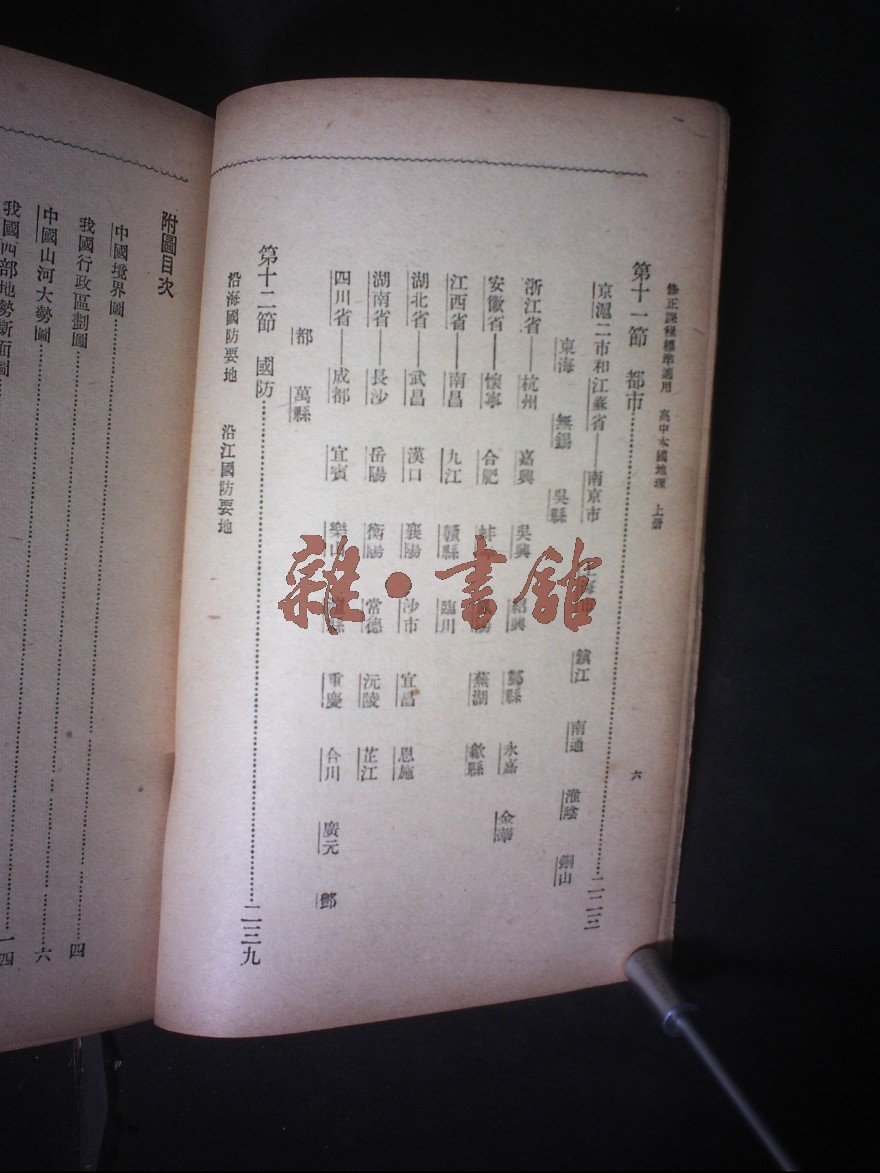 修正課程標準適用 高中本國地理 上册
六
第十一節 都市……二二三
京滬二市和江蘇省——南京市 上海市 鎮江 南通 淮陰 銅山
東海 無錫 吳縣
浙江省——杭州 嘉興 吳興 紹興 鄞縣 永嘉 金華
安徽省——懷寧 合肥 蚌埠 蕪湖 歙縣
江西省——南昌 九江 贛縣 臨川
湖北省——武昌 漢口 襄陽 沙市 宜昌 恩施
湖南省——長沙 岳陽 衡陽 常德 沅陵 芷江
四川省——成都 宜賓 樂山 重慶 合川 廣元 鄷
都 萬縣
第十二節 國防……二三九
沿海國防要地 沿江國防要地
附圖目次
中國境界圖……
我國行政區劃圖……四
中國山河大勢圖……六
我國西部地勢斷面圖……一四
雜·書館